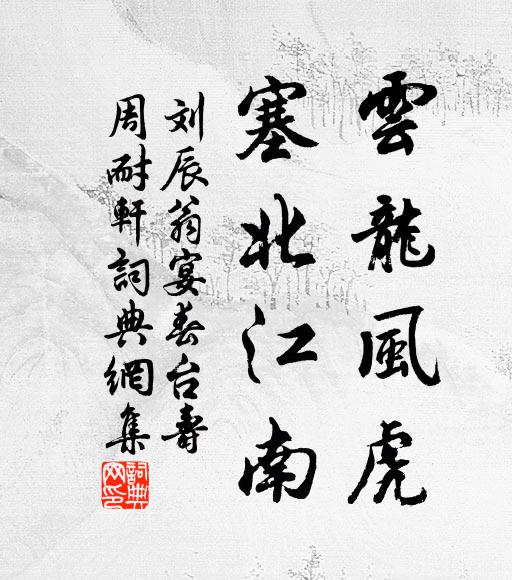 雲龍風虎
塞北江南
刘辰翁宴春台壽
周耐軒詞典網集
詞典网印